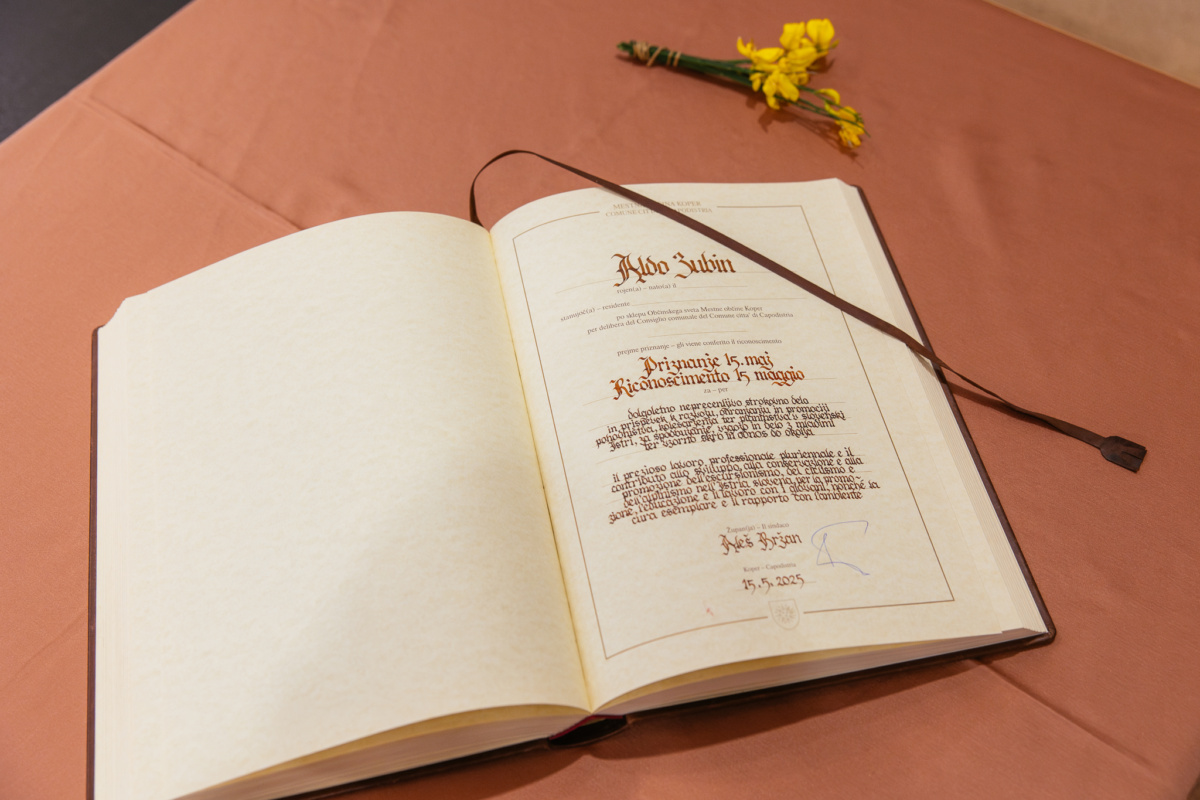 MESTNA OBČINA KOPER
COMUNE CITTÀ DI CAPODISTRIA
Aldo Zubin
rojen(a) – nato(a) il
stanujoč(a) – residente
po sklepu Občinskega sveta Mestne občine Koper
per delibera del Consiglio comunale del Comune citta' di Capodistria
prejme priznanje – gli viene conferito il riconoscimento
Priznanje 15. maj
Riconoscimento 15 maggio
za – per
dolgoletno neprecenljivo strokovno delo
in prispevek k razvoju, ohranjanju in promociji
pohodništva, kolesarjenja ter planinstva v slovenski
Istri, za spodbujanje, vzgojo in delo z mladimi
ter vzorno skrb in odnos do okolja
il prezioso lavoro professionale pluriennale e il
contributo allo sviluppo, alla conservazione e alla
promozione dell'escursionismo, del ciclismo e
dell'alpinismo nell'Istria slovena, per la promo-
zione, l'educazione e il lavoro con i giovani, nonché la
cura esemplare e il rapporto con l'ambiente
Župan(ja) – Il sindaco
Aleš Bržan
Koper – Capodistria
15. 5. 2025